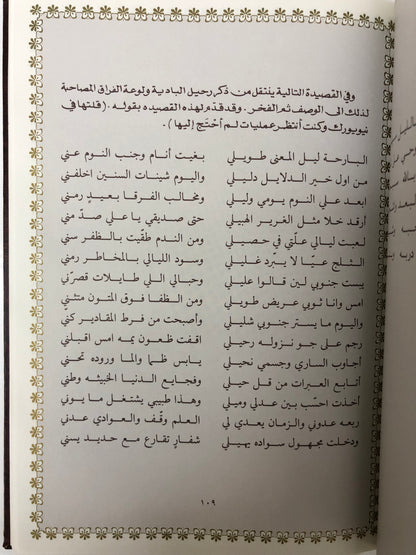 وفي القصيدة التالية ينتقل من ذكر رحيل البادية ولوعة الفراق المصاحبة
لذلك الى الوصف ثم الفخر. وقد قدّم لهذه القصيده بقوله. (قلتها في
نيويورك وكنت أنتظر عمليات لم أحتج إليها).
البارحة ليل المعنى طويلي بغيت أنام وجنب النوم عني
من اول خبر الدلايل دليلي واليوم شيبات السنين اخلفني
ابعد علي النوم يومي وليلي ومخالب الفرقا بعيدٍ رمني
أرقد خلا مثل الغرير الهبيلي حتى صديقي يا علي صدّ مني
لعبت ليالي علّتي في حصيلي ومن الندم طقّيت بالظفر سني
الثلج عيّا لا يبرد غليلي وسود الليالي بالمخاطر رمني
يبست جنوبي لين قالوا عليلي وحبالي اللي طايلات قصرّني
امس وانا ثوبي عريض طويلي ومن الظفا فوق المتون متثني
واليوم ما يستر جنوبي شليلي وأصبحت من فرط المقادير كني
رجم على جو نزوله رحيلي اقفت ظعون يمه امس اقبلني
أجاوب الساري وجسمي نحيلي يابس ظما والما وروده تحني
أتابع العبرات من قل حيلي وفجايع الدنيا الخبيثه وطني
أخذت احسّب بين عدلي وميلي وهذا طبيبي يشتغل ما يوني
ربعه عدوني والزمان يعدي لي العلم وقّف والعوادي عدني
ودخلت مجهول سواده يهيلي شفار تقارع مع حديد يسني
١٠٩